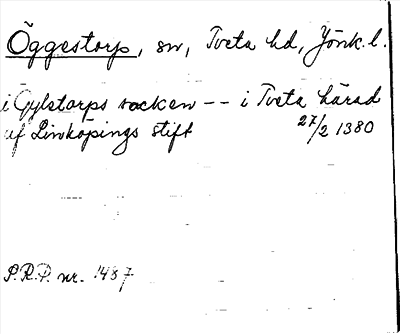 Öggestorp, sn, Tveta hd, Jönk. l.
i Gylstorps socken -- i Tveta härad
af Linköpings stift 27/2 1380
S.R.P. nr. 1487